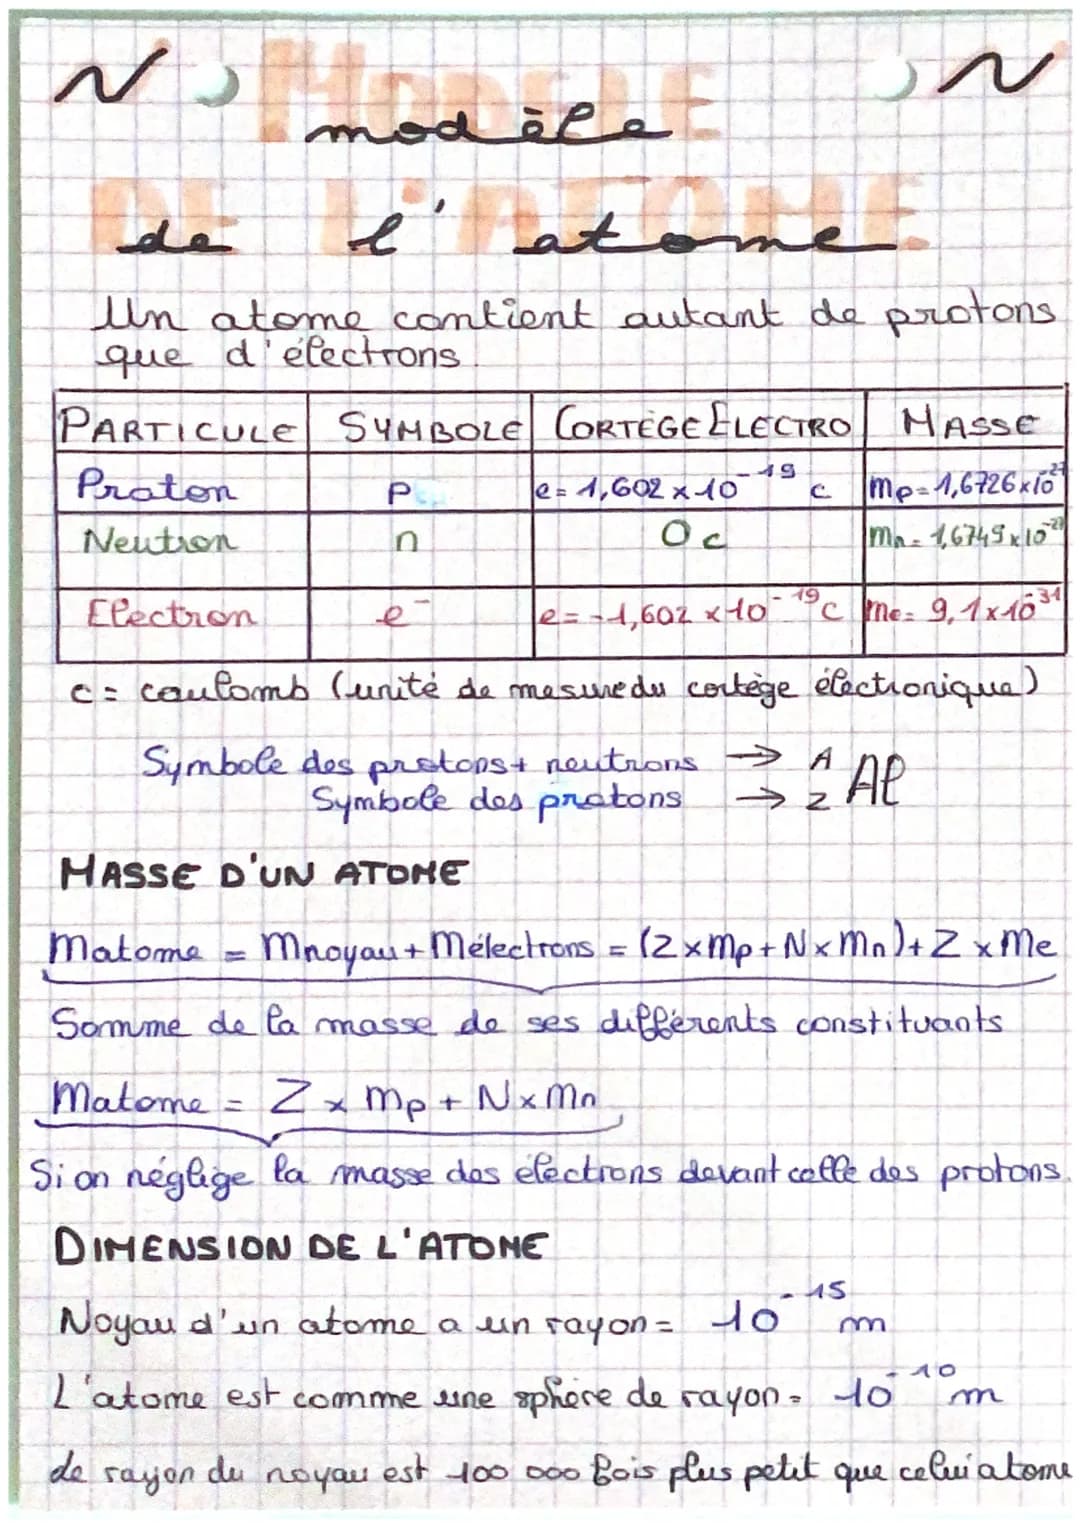 MODELE
modèle
DE L'ATOME
de l'atome
Un atome contient autant de protons
que d'électrons.
PARTICULE SYMBOLE CORTEGE ELECTRO MASSE
Proton p e = 1,602 x 10⁻¹⁹ c mp = 1,6726 x 10⁻²⁷
Neutron n 0 c mn = 1,6749 x 10⁻²⁷
Electron e⁻ e = -1,602 x 10⁻¹⁹ c me = 9,1 x 10⁻³¹
c = coulomb (unité de mesure du cortège électronique)
Symbole des protons + neutrons → A
Symbole des protons → Z Al
MASSE D'UN ATOME
Matome = Mnoyau + Mélectrons = (Z x mp + N x mn) + Z x me
Somme de la masse de ses différents constituants
Matome = Z x mp + N x mn
Si on néglige la masse des électrons devant celle des protons.
DIMENSION DE L'ATOME
Noyau d'un atome a un rayon = 10⁻¹⁵ m
L'atome est comme une sphère de rayon = 10⁻¹⁰ m
de rayon du noyau est 100 000 fois plus petit que celui atome